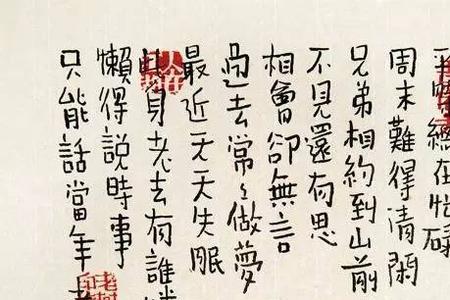 總在忙碌
周末難得清閑
兄弟相約到山前
不見還有思
相會卻無言
過去常々做夢
最近天天失眠
此身老去有誰
懶得說時事
只能話當年